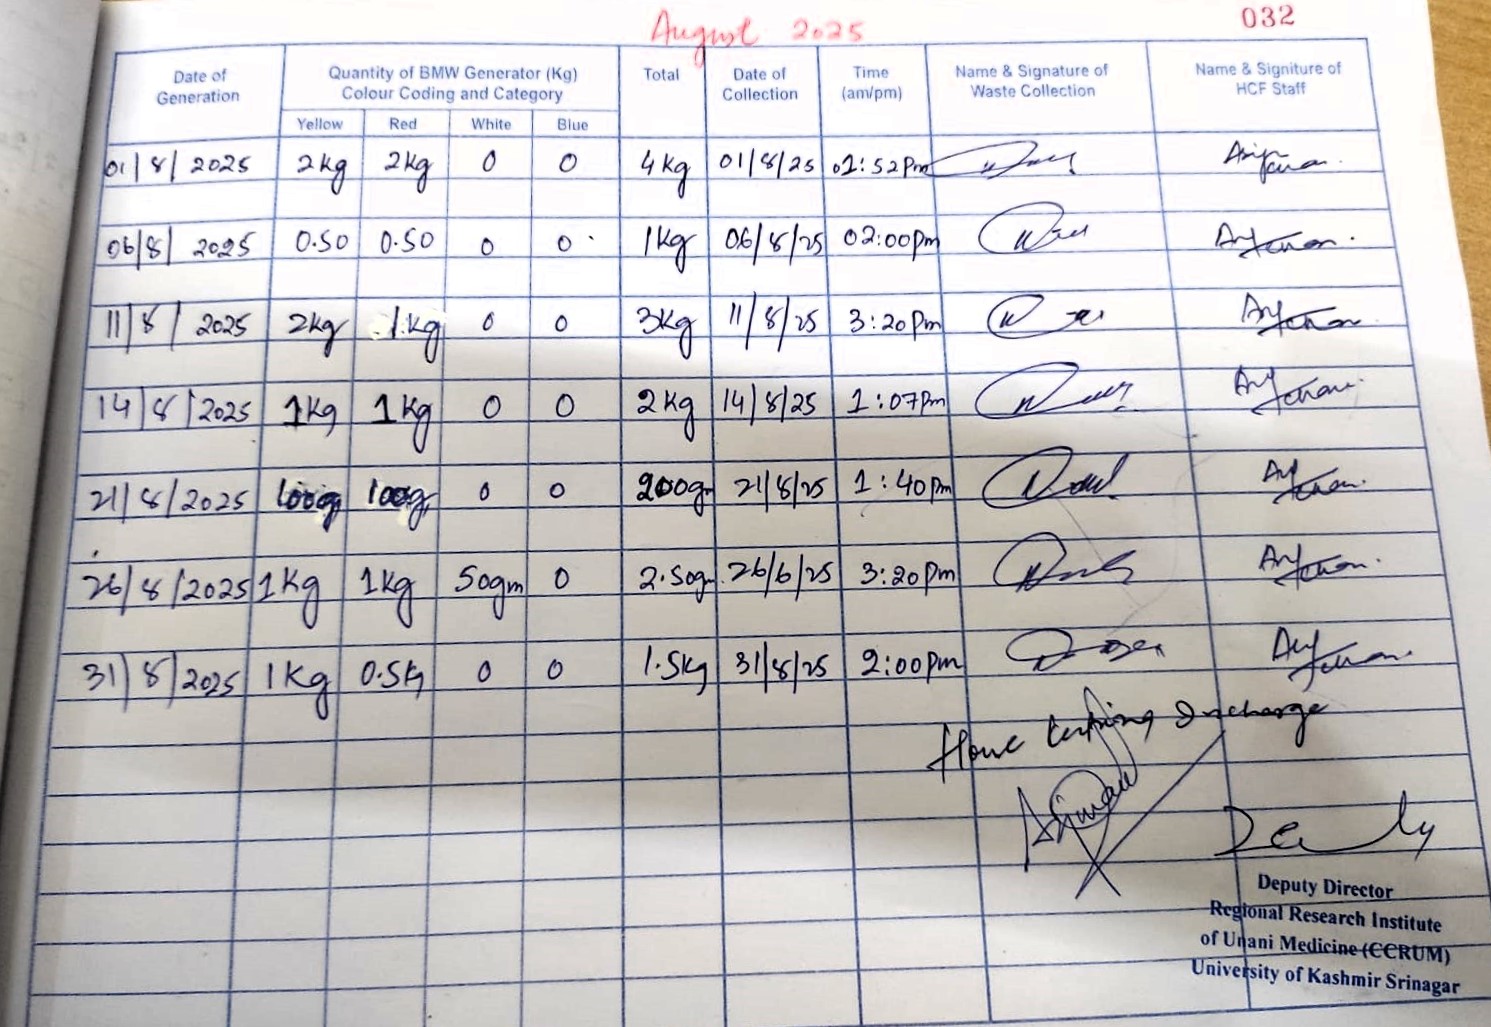 August 2025
032
Date of Generation | Quantity of BMW Generator (Kg) Colour Coding and Category | Total | Date of Collection | Time (am/pm) | Name & Signature of Waste Collection | Name & Signiture of HCF Staff
Yellow | Red | White | Blue
01/8/2025 | 2kg | 2kg | 0 | 0 | 4kg | 01/8/25 | 01:52Pm
06/8/2025 | 0.50 | 0.50 | 0 | 0 | 1kg | 06/8/25 | 02:00pm
11/8/2025 | 2kg | 1kg | 0 | 0 | 3kg | 11/8/25 | 3:20pm
14/8/2025 | 1kg | 1kg | 0 | 0 | 2kg | 14/8/25 | 1:07Pm
21/8/2025 | 100g | 100g | 0 | 0 | 200gm | 21/8/25 | 1:40pm
26/8/2025 | 1Kg | 1Kg | 50gm | 0 | 2.50gm | 26/6/25 | 3:20Pm
31/8/2025 | 1Kg | 0.5kg | 0 | 0 | 1.5kg | 31/8/25 | 2:00pm
Incharge
Deputy Director
Regional Research Institute
of Unani Medicine (CCRUM)
University of Kashmir Srinagar